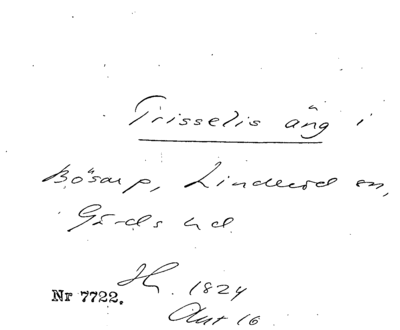 Trisselis äng i
Bösarp, Linderöd sn,
Gärds hd.
Hh. 1824
Nr 7722.
Akt 16